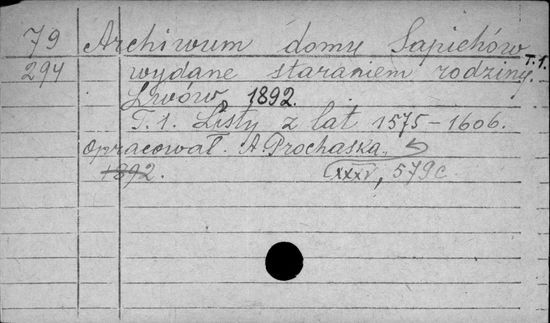 79 Archiwum domu Sapiehów T.1.
294 wydane staraniem rodziny.
Lwów, 1892.
T. 1. Listy z lat 1575-1606.
opracował. A. Prochaska.
1892. XXXV, 579 c.